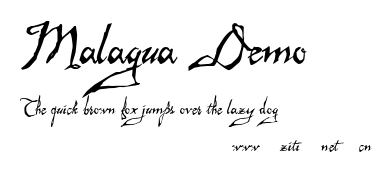 Malagua Demo
The quick brown fox jumps over the lazy dog
www ziti net cn